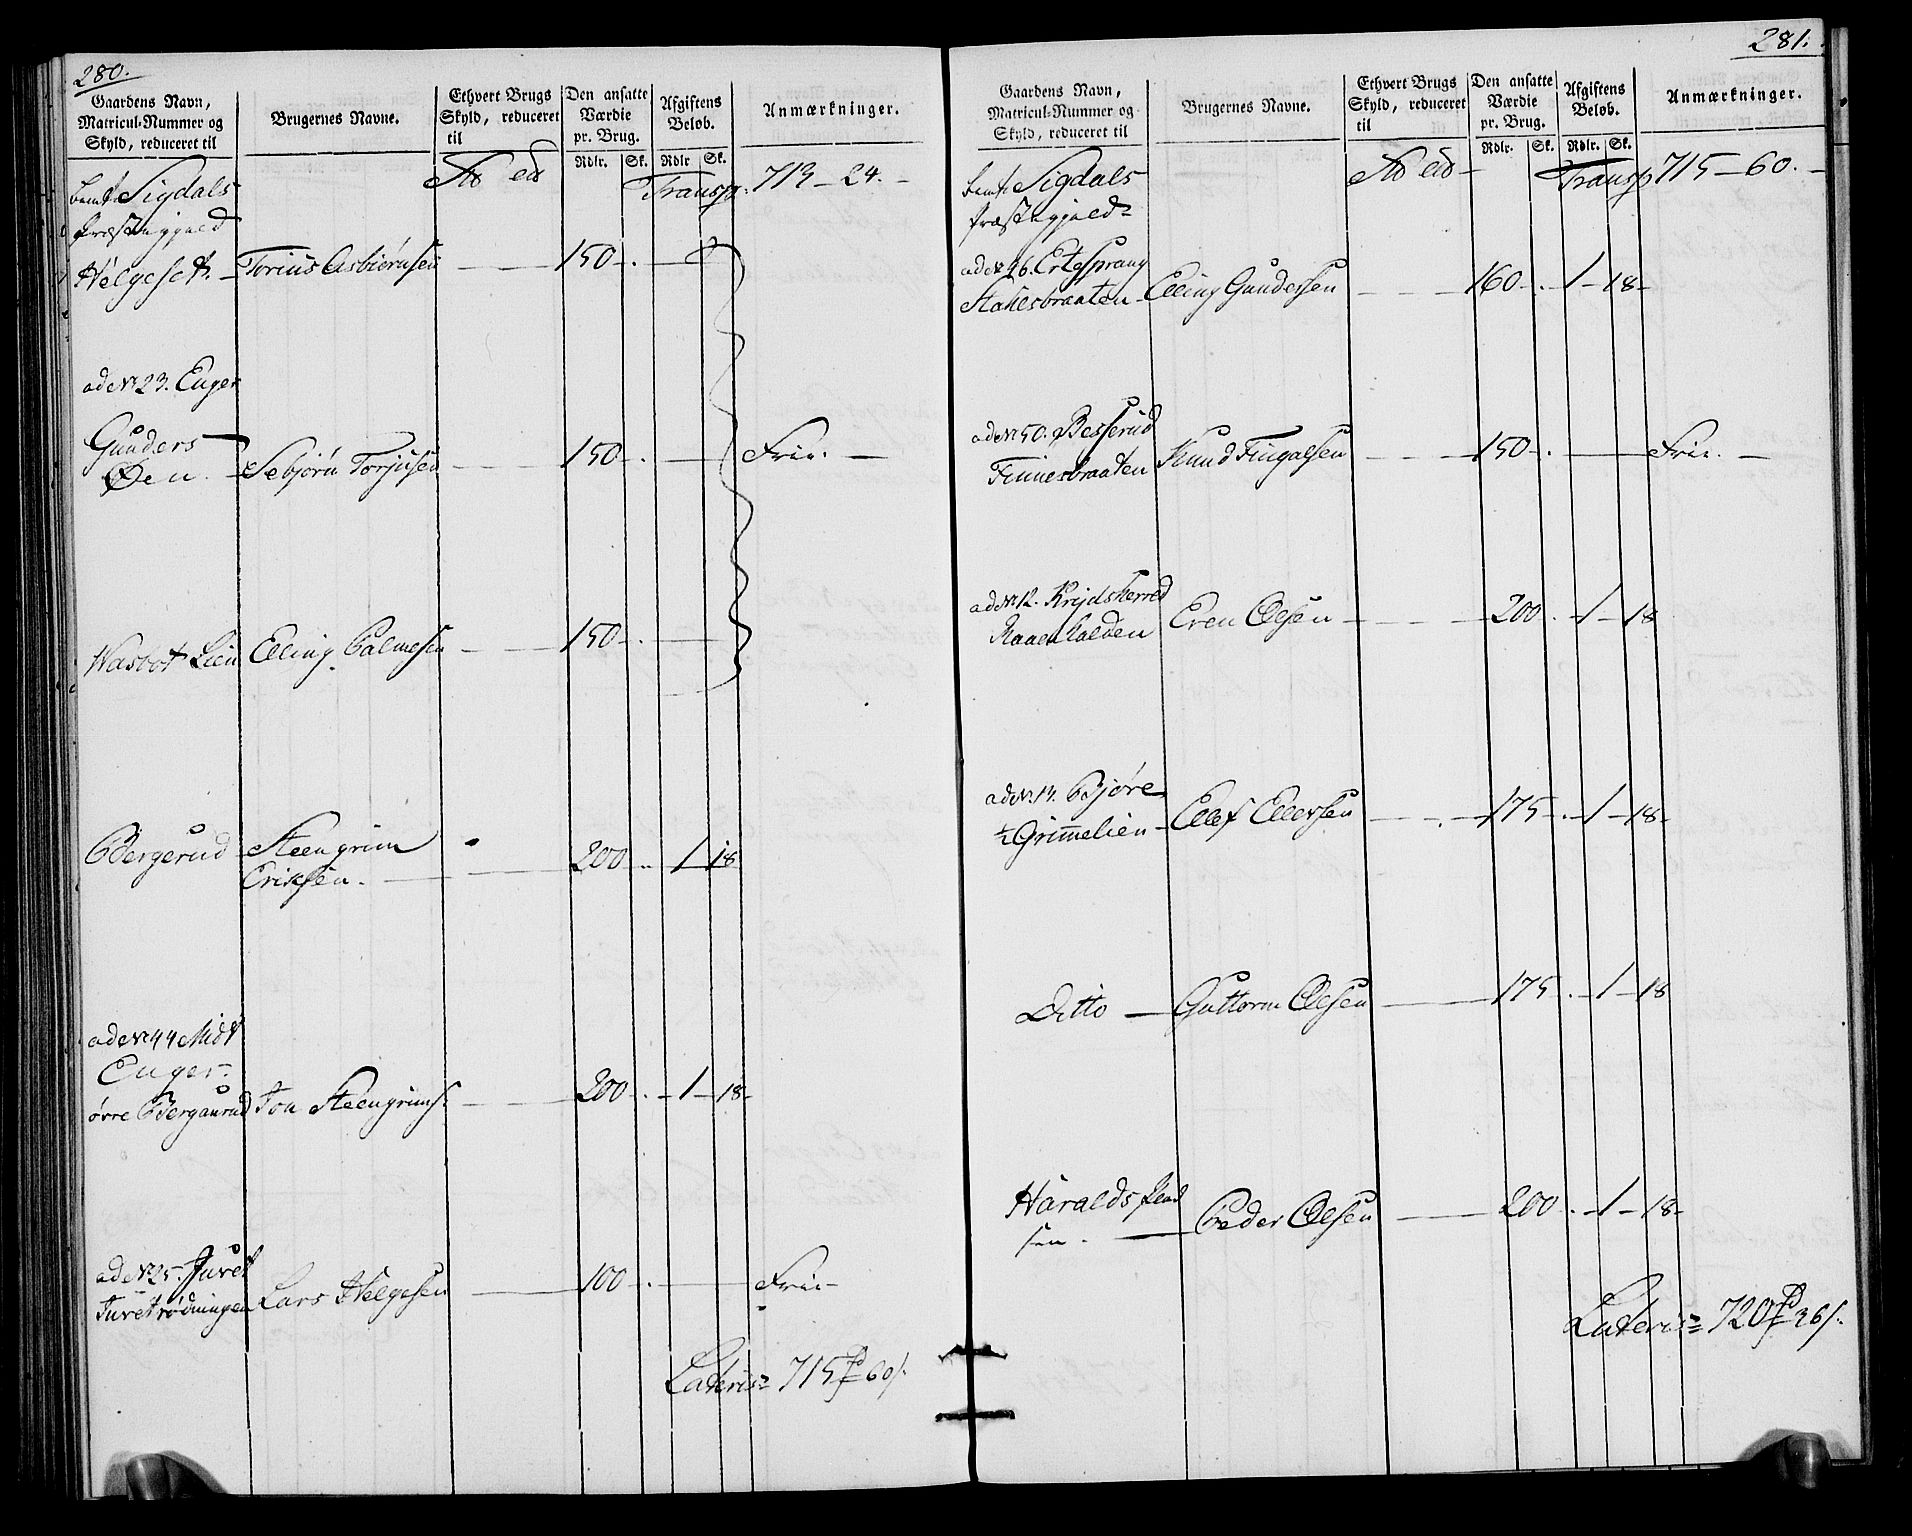 280.
Gaardens Navn,
Matricul-Nummer og
Skyld, reduceret til
Brugernes Navne.
Ethvert Brugs
Skyld, reduceret
til
Den ansatte
Værdie
pr. Brug.
Rdlr. Sk.
Afgiftens
Beløb.
Rdlr Sk.
Anmærkninger.
Sigdals Transp: 713 – 24. –
Præstegjeld
Helgeset. – Torius Asbiørnsen 150 – .
ad No 23. Enger
Gunders
Øen. – Sebjørn Torjusen 150 – . Frie. –
Wasbot Lien Elling Palmesen 150 – .
Bergerud Steengrim
Eriksen. 200 .. 1 18
ad No 44 Midt
Enger
øvre Berganrud Jon Steengrims. 200 . 1 – 18 –
ad No 25. Juvet
Juvetrødningen Lars Helgesen 100 . Frie –
Lateris 715 60
281.
Gaardens Navn,
Matricul-Nummer og
Skyld, reduceret til
Brugernes Navne.
Ethvert Brugs
Skyld, reduceret
til
Den ansatte
Værdie
pr. Brug.
Rdlr. Sk.
Afgiftens
Beløb.
Rdlr. Sk.
Anmærkninger.
Sigdals Transp 715 – 60. –
Præstegjeld
ad No 46. Ertesprang
Stakesbraaten – Elling Gundersen 160 – . 1 – 18 –
ad No 50. Besserud
Finnesbraaten Knud Fingalsen 150 – . Frie. –
ad No 12. Krydsherred
Eren Olsen 200 . 1 – 18
ad No 14. Bjøre
½ Grimelien – Ellef Ellevsen 175 – . 1 – 18 –
Ditto – Guttorm Olsen 175 . 1 – 18
Haralds Plad
sen. – Peder Olsen 200 . 1 – 18 –
Lateris 720 36